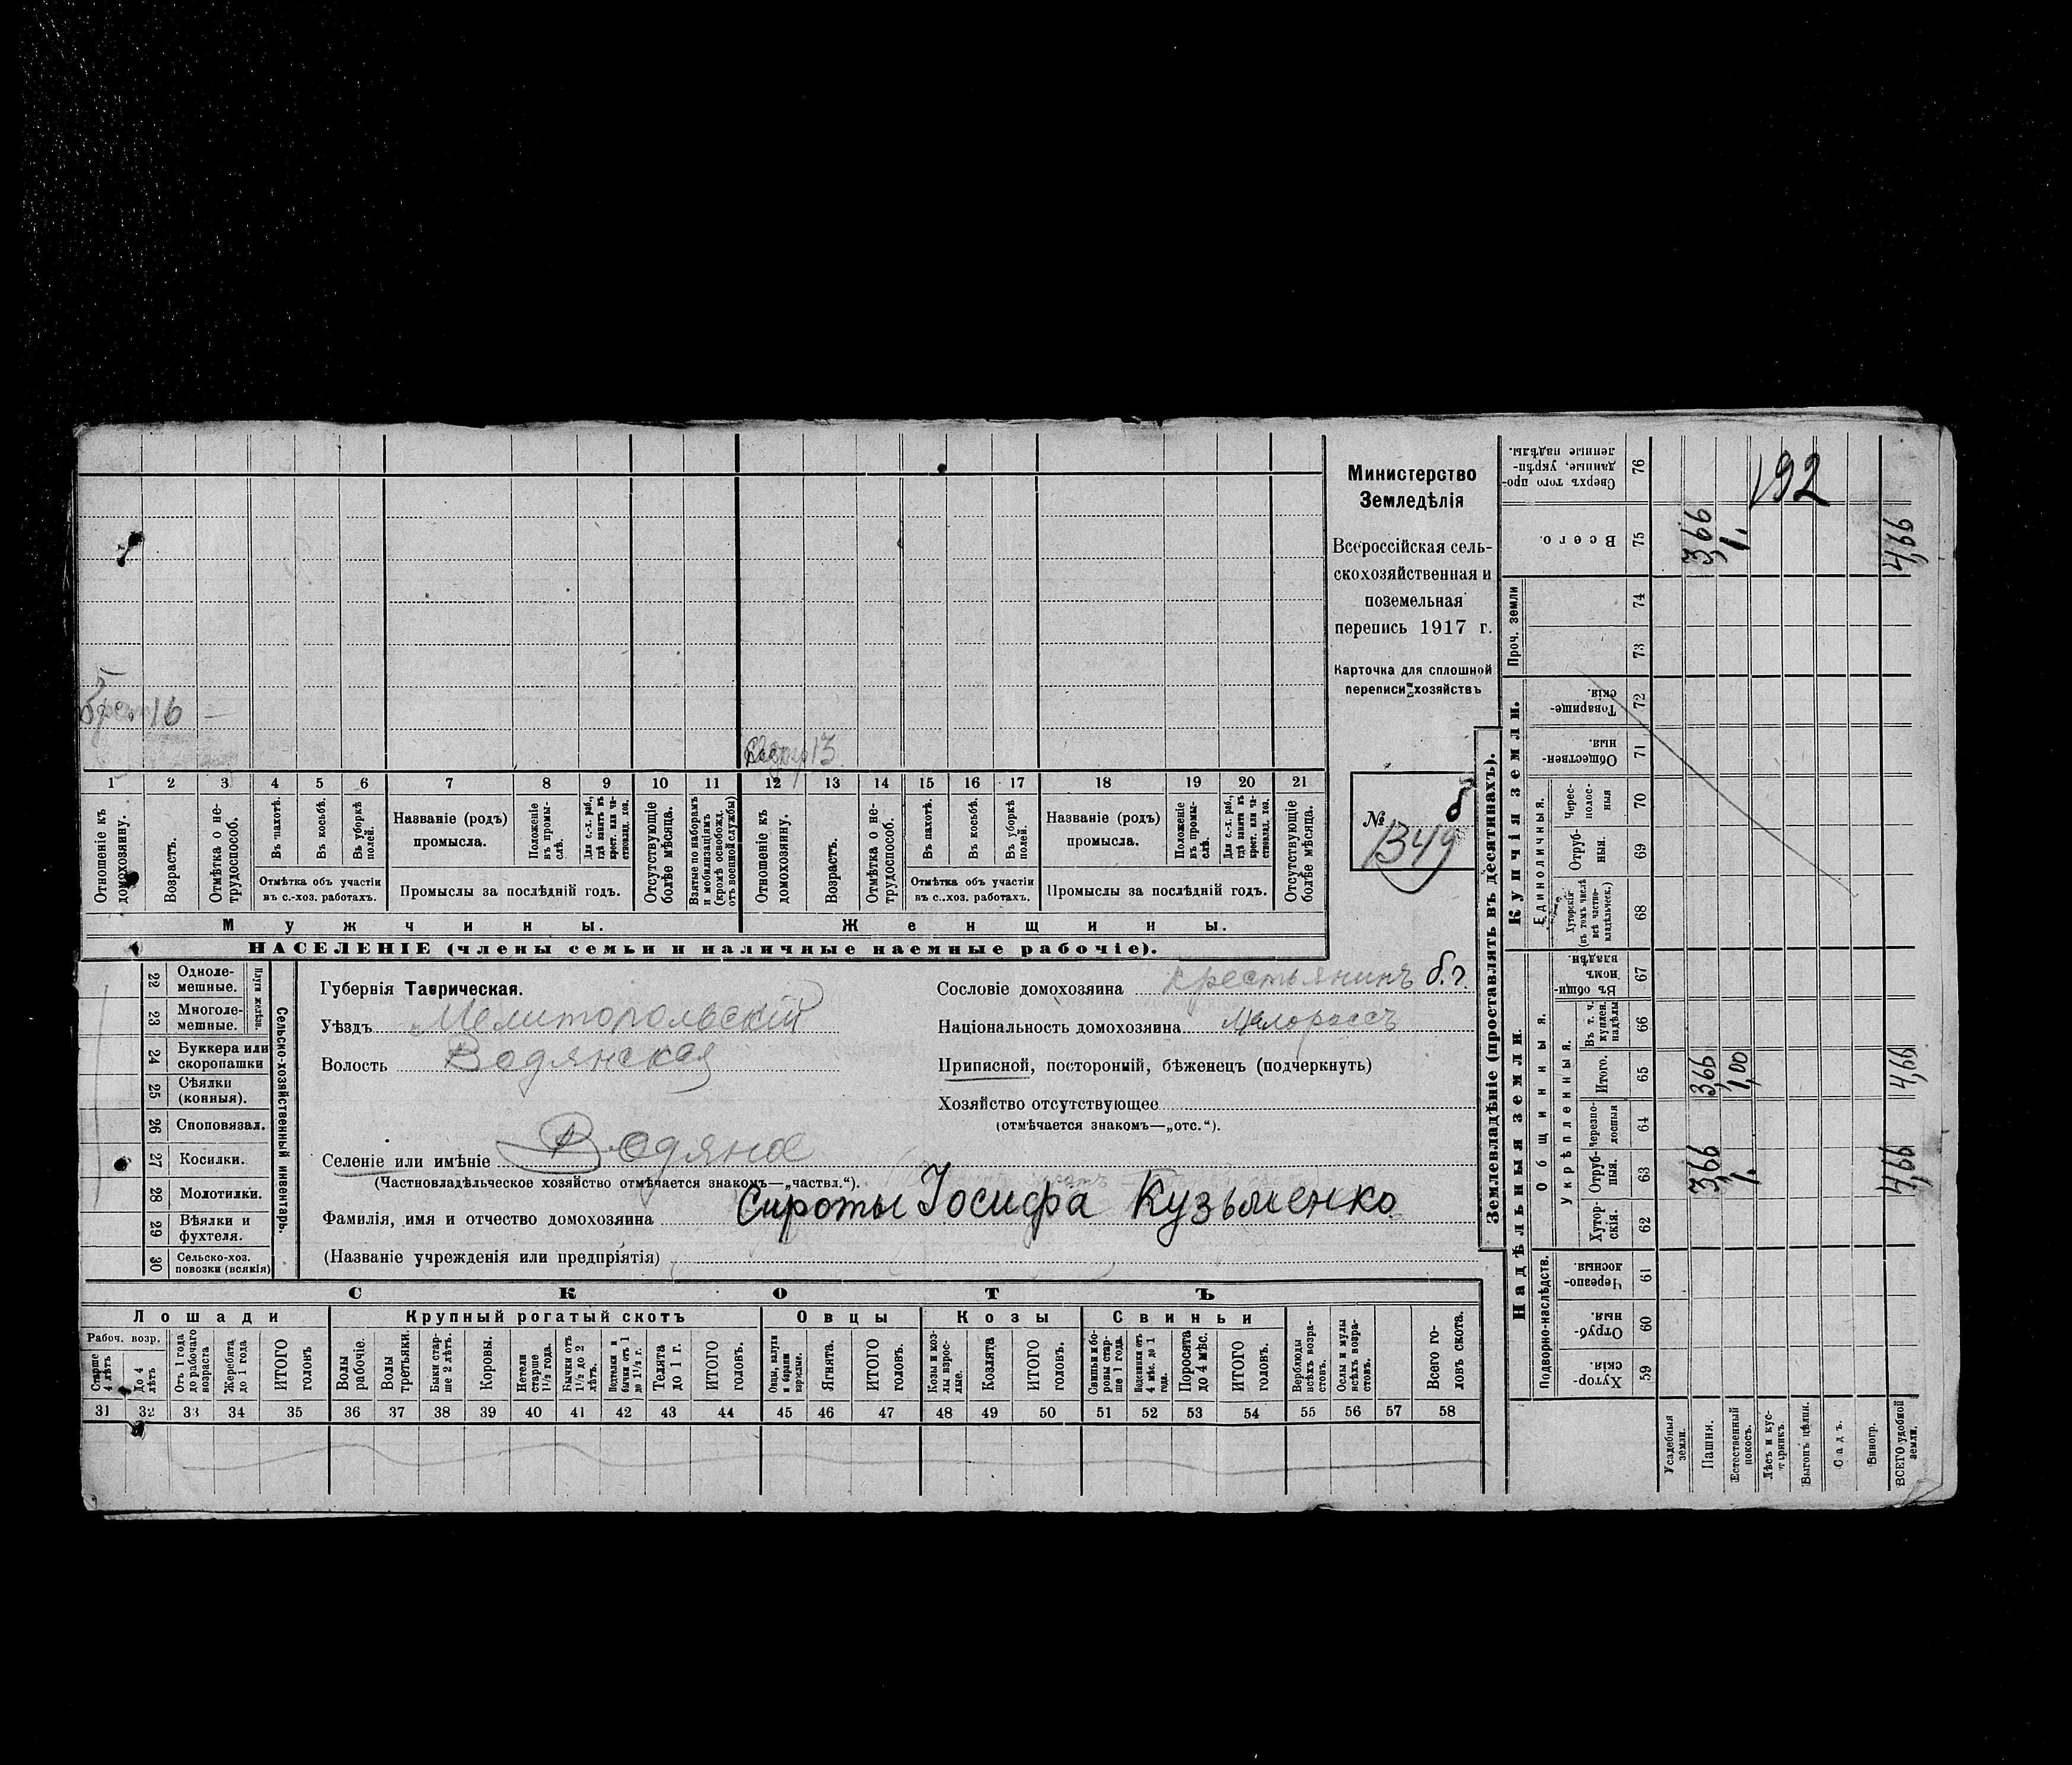 Министерство
Земледѣлія
Всероссійская сель-
скохозяйственная и
поземельная
перепись 1917 г.
Карточка для сплошной
переписи хозяйствъ
№ б
1349
16
13
1 2 3 4 5 6 7 8 9 10 11 12 13 14 15 16 17 18 19 20 21
Отношеніе къ домохозяину.
Возрастъ.
Отмѣтка о не-трудоспособ.
Въ пахотѣ.
Въ косьбѣ.
Въ уборкѣ полей.
Отмѣтка объ участіи
въ с.-хоз. работахъ.
Названіе (родъ)
промысла.
Положеніе въ промы-слѣ.
Для с.-х. раб., гдѣ занятъ въ крест. или ча-стновлад. хоз.
Промыслы за послѣдній годъ.
Отсутствующіе болѣе мѣсяца.
Взятые по наборамъ и мобилизаціямъ (кромѣ освобожд. отъ военной службы)
Отношеніе къ домохозяину.
Возрастъ.
Отмѣтка о не-трудоспособ.
Въ пахотѣ.
Въ косьбѣ.
Въ уборкѣ полей.
Отмѣтка объ участіи
въ с..хоз. работахъ.
Названіе (родъ)
промысла.
Положеніе въ промы-слѣ.
Для с.-х. раб., гдѣ занята въ крест. или ча-стновлад. хоз.
Промыслы за послѣдній годъ.
Отсутствующіе болѣе мѣсяца.
Мужчины. Женщины.
НАСЕЛЕНІЕ (члены семьи и наличные наемные рабочіе).
Сельско-хозяйственный инвентарь.
Плуги желѣзн.
22 Одноле-мешные.
23 Многоле-мешные.
24 Буккера или скоропашки
25 Сѣялки (конныя).
26 Сноповязал.
27 Косилки.
28 Молотилки.
29 Вѣялки и фухтеля.
30 Сельско-хоз. повозки (всякія)
Губернія Таврическая.
Уѣздъ Мелитопольскій
Волость Водянская
Селеніе или имѣніе Водяно
(Частновладѣльческое хозяйство отмѣчается знакомъ—„частвл.“).
Фамилія, имя и отчество домохозяина Сироты Іосифа Кузьменко
(Названіе учрежденія или предпріятія)
Сословіе домохозяина крестьянинъ б.г.
Національность домохозяина Малороссъ
Приписной, посторонній, бѣженецъ (подчеркнуть)
Хозяйство отсутствующее
(отмѣчается знакомъ—„отс.“).
СКОТЪ
Лошади Крупный рогатый скотъ Овцы Козы Свиньи
Рабоч. возр.
Старше 4 лѣтъ
До 4 лѣтъ
Отъ 1 года до рабочаго возраста
Жеребята до 1 года
ИТОГО головъ
Волы рабочіе.
Волы третьяки.
Быки стар-ше 2 лѣтъ.
Коровы.
Нетели старше 1½ года.
Бычки отъ 1½ до 2 лѣтъ.
Подтелки и бычки отъ 1 до 1½ г.
Телята до 1 г.
ИТОГО головъ.
Овцы, валухи и бараны взрослые.
Ягнята.
ИТОГО головъ.
Козы и коз-лы взрос-лые.
Козлята
ИТОГО головъ.
Свиньи и бо-ровы стар-ше 1 года.
Подсвинки отъ 4 мѣс. до 1 года.
Поросята до 4 мѣс.
ИТОГО головъ.
Верблюды всѣхъ возра-стовъ.
Ослы и мулы всѣхъ возра-стовъ.
Всего го-ловъ скота.
31 32 33 34 35 36 37 38 39 40 41 42 43 44 45 46 47 48 49 50 51 52 53 54 55 56 57 58
Землевладѣніе (проставлять въ десятинахъ).
Надѣльныя земли.
Подворно-наслѣдств.
Хутор-скія. 59
Отруб-ныя. 60
Черезпо-лосныя. 61
Общинныя.
Укрѣпленныя.
Хутор-скія. 62
Отруб-ныя. 63
Черезпо-лосныя 64
Итого. 65
Въ т. ч. куплен. надѣлы 66
Въ общи-номъ владѣн. 67
Купчія земли.
Единоличныя.
Хуторскія (въ томъ числѣ всѣ частно-владѣльческ.) 68
Отруб-ныя. 69
Черес-полос-ныя 70
Обществен-ныя. 71
Товарище-скія. 72
Проч. земли
73
74
Всего. 75
Сверхъ того про-данные, укрѣп-ленные надѣлы. 76
Усадебныя земли.
Пашня. 3,66 3,66 3,66
Естественный покосъ. 1. 1,00 1.
Лѣсъ и кус-тарникъ.
Выгонъ цѣлин.
Садъ.
Виногр.
ВСЕГО удобной земли. 4,66 4,66 4,66
192